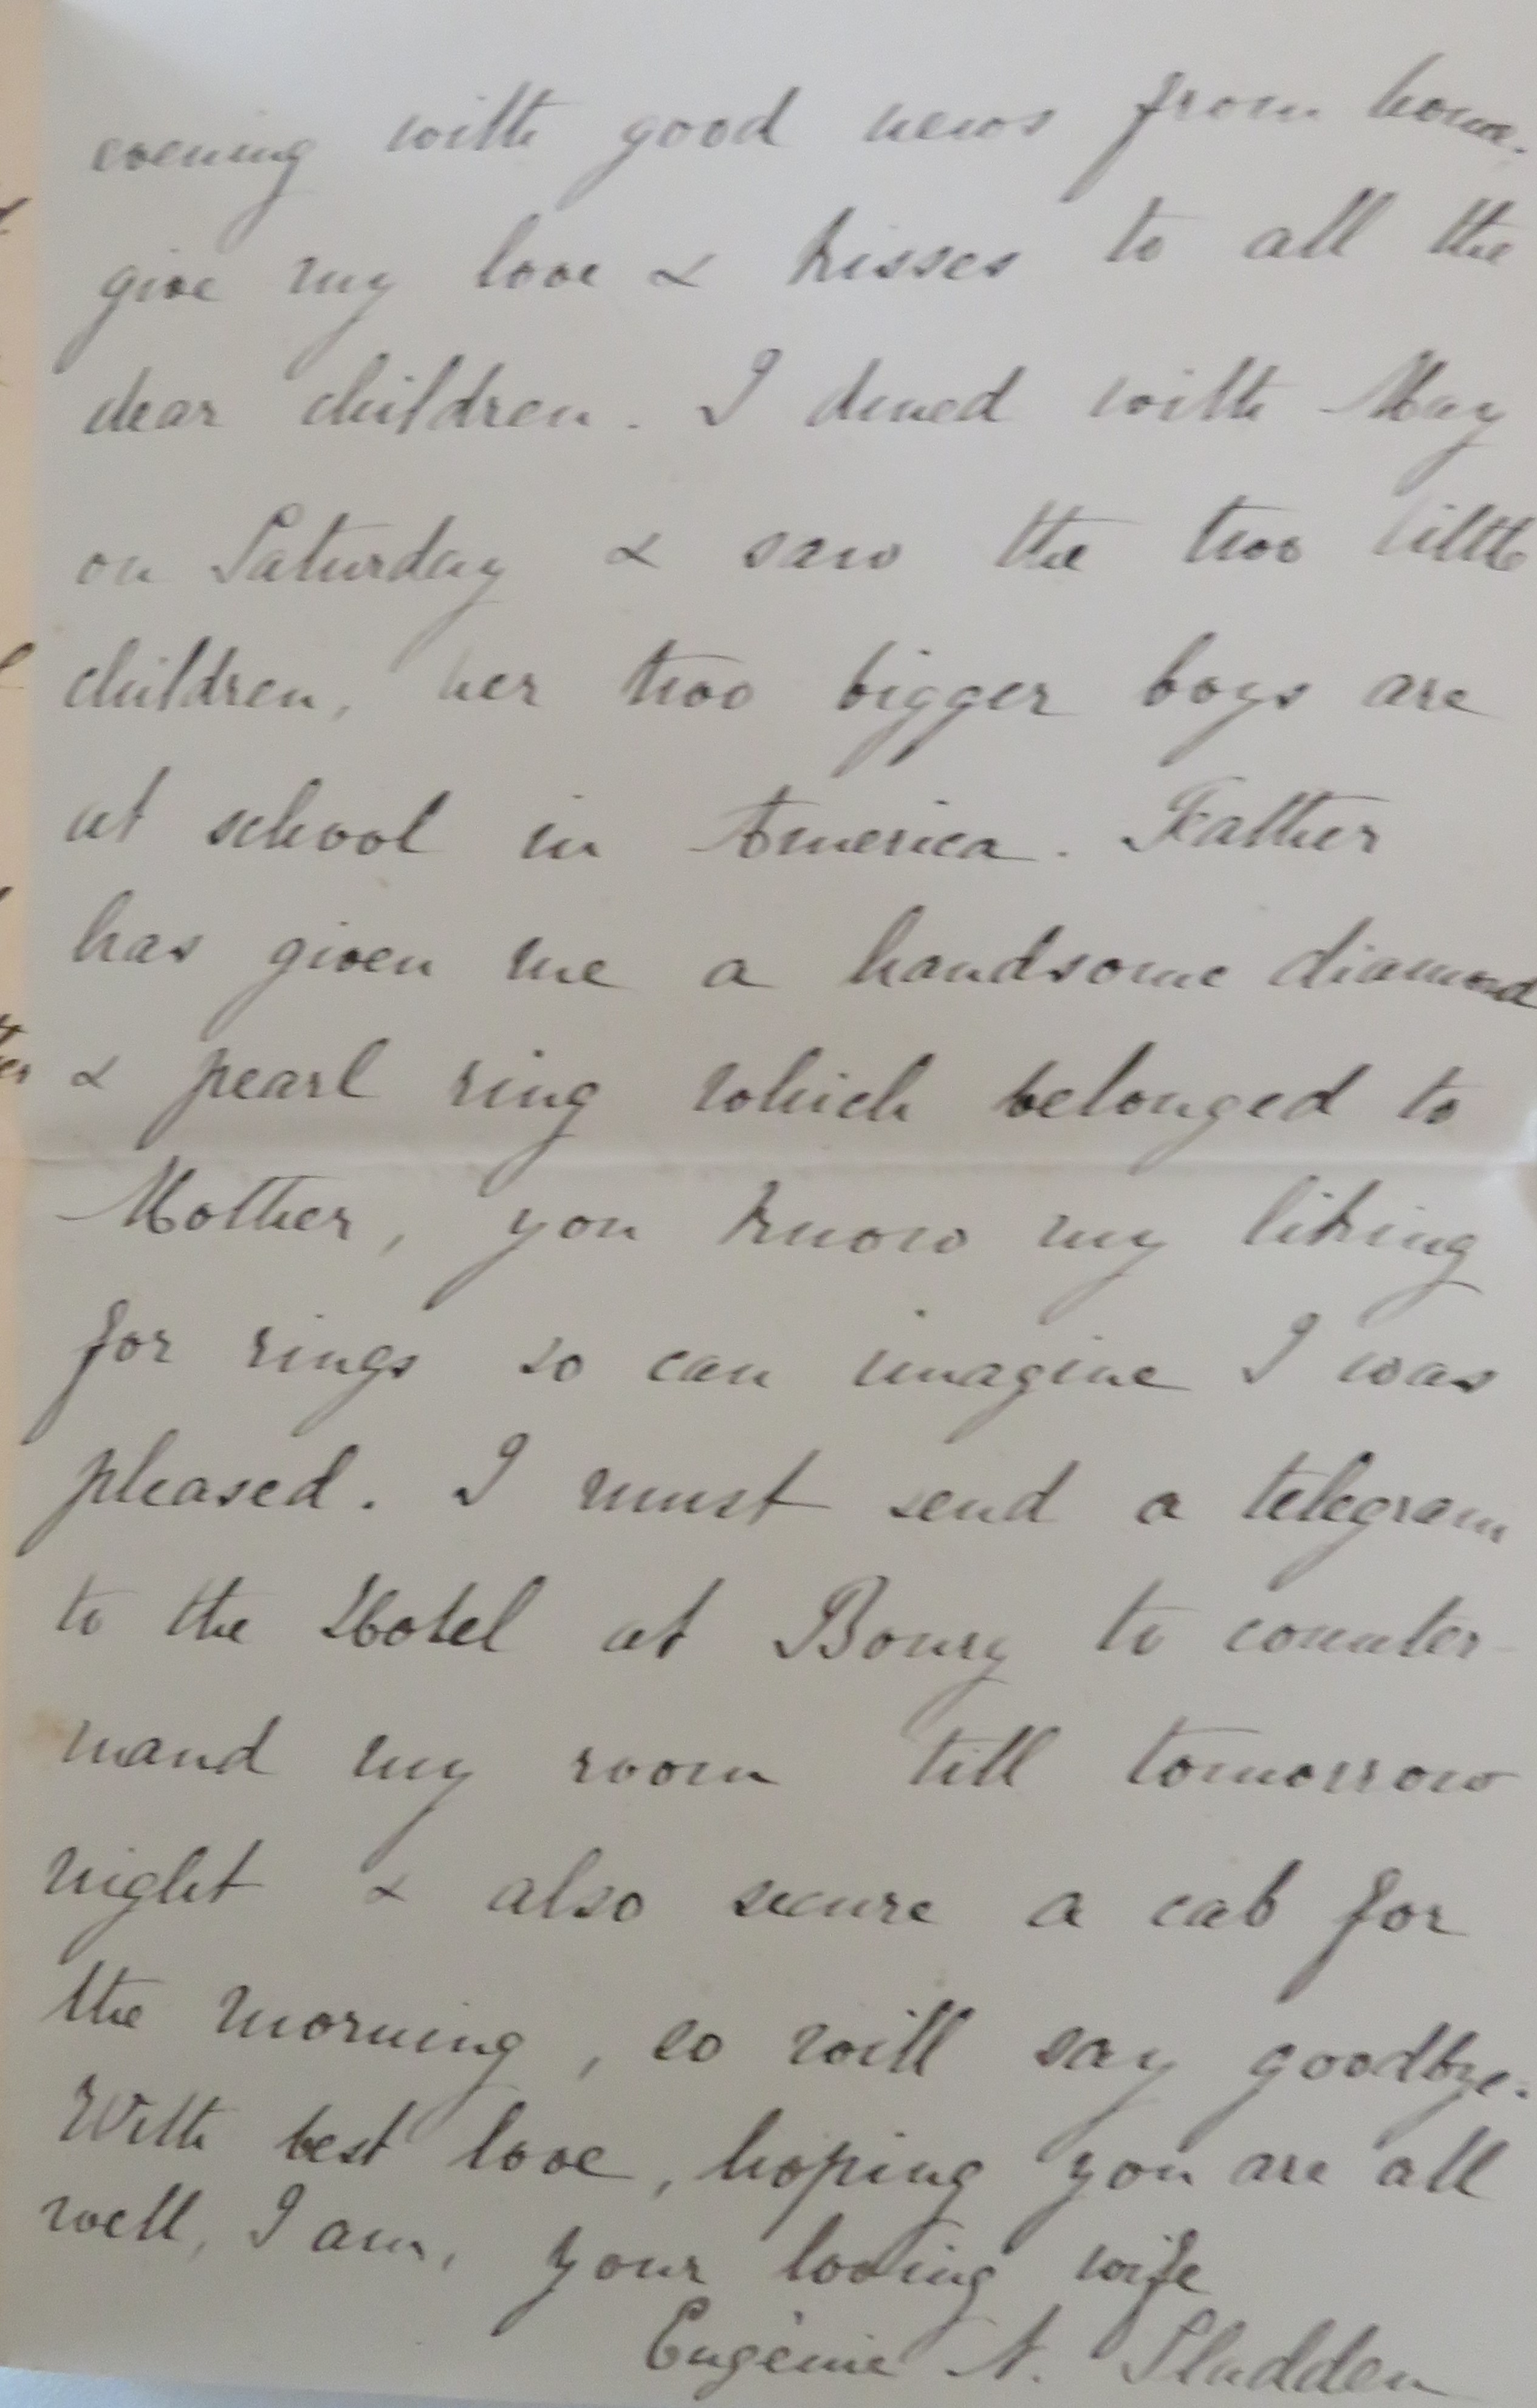 evening with good news from home.
give my love & kisses to all the
dear children. I dined with May
on Saturday & saw the two little
children, her two bigger boys are
at school in America. Father
has given me a handsome diamond
& pearl ring which belonged to
Mother, you know my liking
for rings so can imagine I was
pleased. I must send a telegram
to the Hotel at Bourg to counter
mand my room till tomorrow
night & also secure a cab for
the morning, so will say goodbye.
With best love, hoping you are all
well, I am, your loving wife
Eugénie N. Sladden